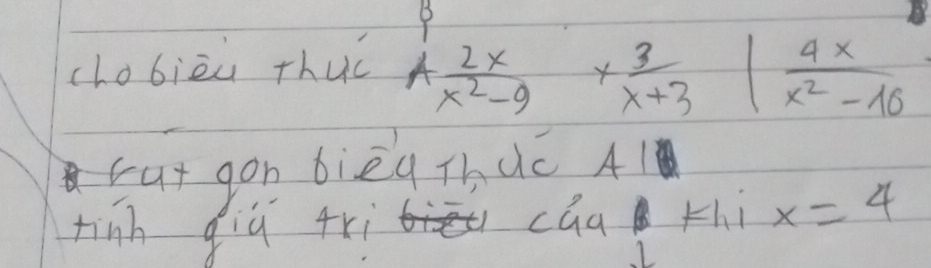 cho biểu thức A \frac{2x}{x^2-9} + \frac{3}{x+3} | \frac{4x}{x^2-16}
rut gon biểu thức A |
tính giá trị của khi x = 4